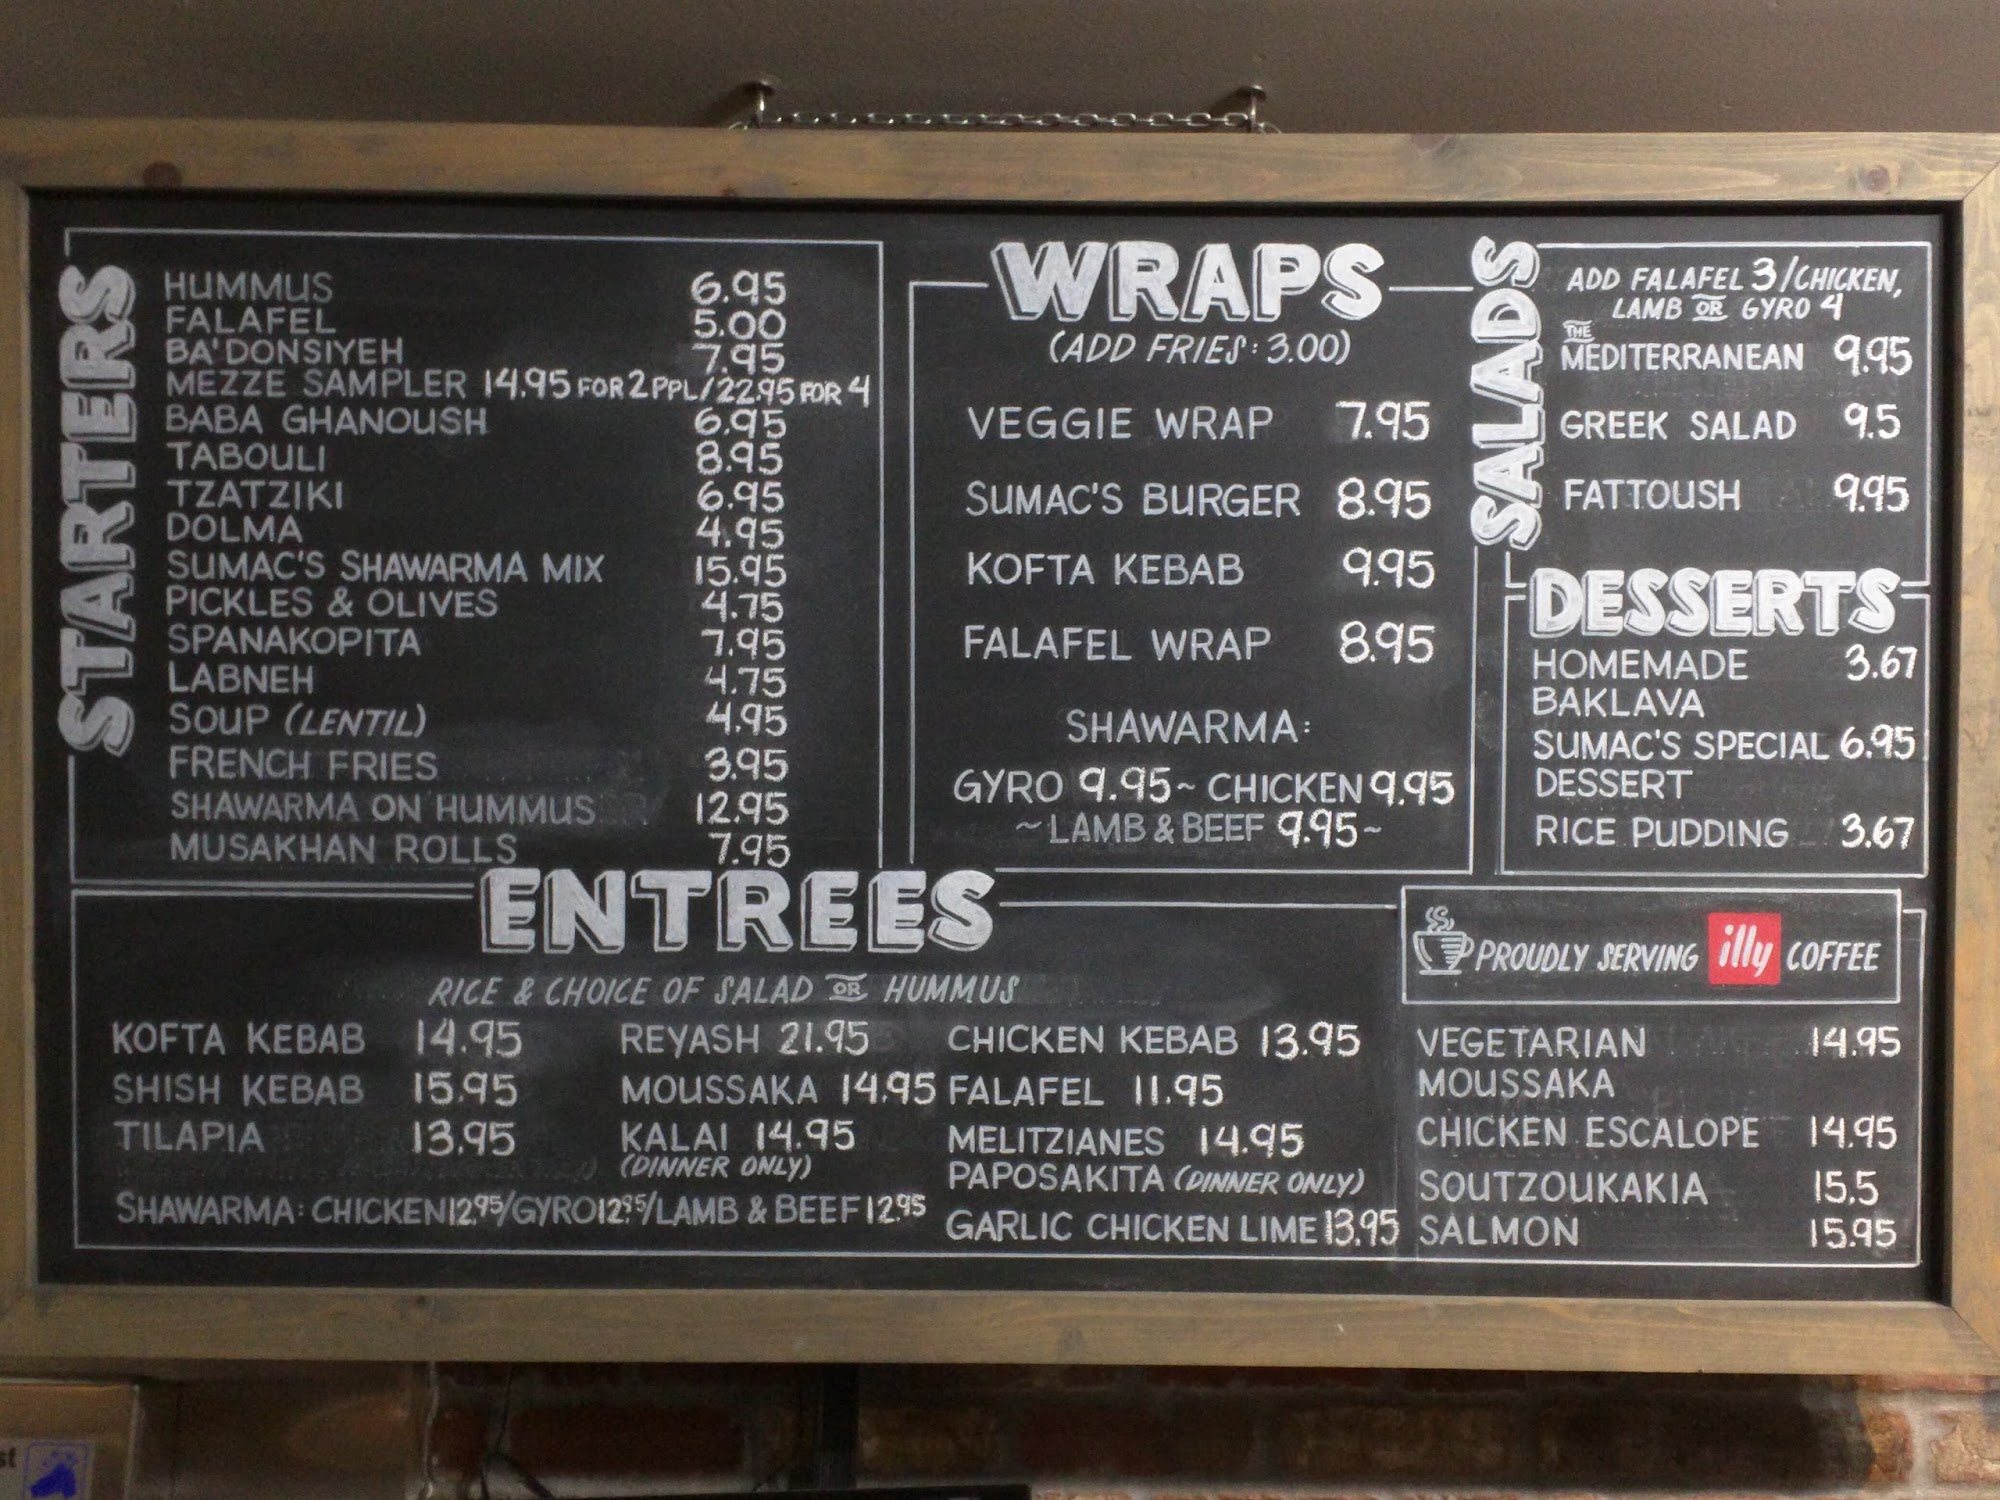 STARTERS
HUMMUS 6.95
FALAFEL 5.00
BA'DONSIYEH 7.95
MEZZE SAMPLER 14.95 FOR 2 PPL/22.95 FOR 4
BABA GHANOUSH 6.95
TABOULI 8.95
TZATZIKI 6.95
DOLMA 4.95
SUMAC'S SHAWARMA MIX 15.95
PICKLES & OLIVES 4.75
SPANAKOPITA 7.95
LABNEH 4.75
SOUP (LENTIL) 4.95
FRENCH FRIES 3.95
SHAWARMA ON HUMMUS 12.95
MUSAKHAN ROLLS 7.95
WRAPS
(ADD FRIES: 3.00)
VEGGIE WRAP 7.95
SUMAC'S BURGER 8.95
KOFTA KEBAB 9.95
FALAFEL WRAP 8.95
SHAWARMA:
GYRO 9.95 ~ CHICKEN 9.95
~ LAMB & BEEF 9.95 ~
SALADS
ADD FALAFEL 3/CHICKEN,
LAMB OR GYRO 4
THE
MEDITERRANEAN 9.95
GREEK SALAD 9.5
FATTOUSH 9.95
DESSERTS
HOMEMADE 3.67
BAKLAVA
SUMAC'S SPECIAL 6.95
DESSERT
RICE PUDDING 3.67
ENTREES
RICE & CHOICE OF SALAD OR HUMMUS
KOFTA KEBAB 14.95
SHISH KEBAB 15.95
TILAPIA 13.95
REYASH 21.95
MOUSSAKA 14.95
KALAI 14.95
(DINNER ONLY)
SHAWARMA: CHICKEN 12.95/GYRO 12.95/LAMB & BEEF 12.95
CHICKEN KEBAB 13.95
FALAFEL 11.95
MELITZIANES 14.95
PAPOSAKITA (DINNER ONLY)
GARLIC CHICKEN LIME 13.95
PROUDLY SERVING illy COFFEE
VEGETARIAN 14.95
MOUSSAKA
CHICKEN ESCALOPE 14.95
SOUTZOUKAKIA 15.5
SALMON 15.95